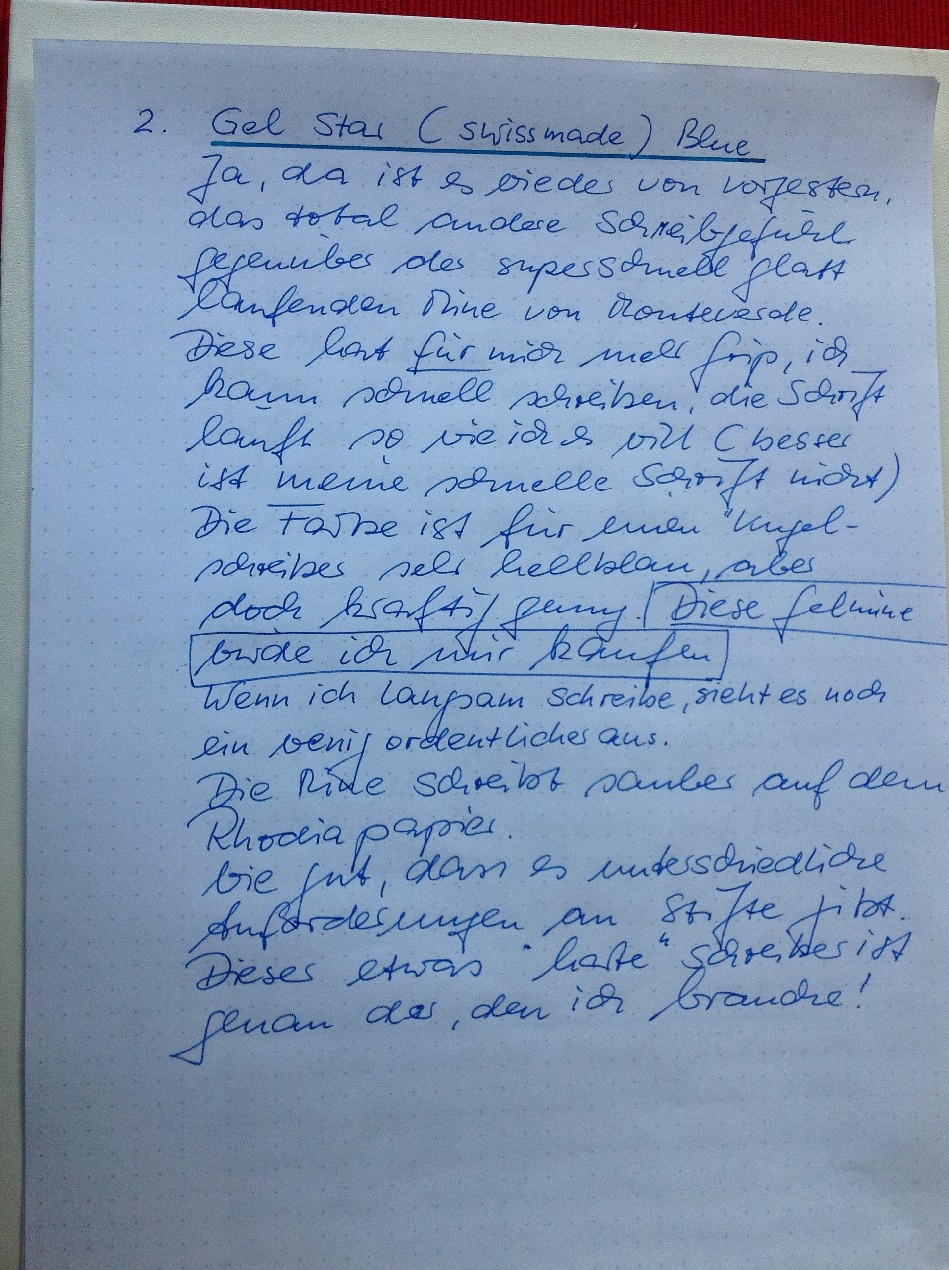 2. Gel Star (swissmade) Blue
Ja, da ist es wieder von vorgestern,
das total andere Schreibgefühl
gegenüber der superschnell glatt
laufenden Mine von Monteverde.
Diese hat für mich mehr Grip, ich
kann schnell schreiben, die Schrift
läuft so wie ich es will (besser
ist meine schnelle Schrift nicht)
Die Farbe ist für einen "Kugel-
schreiber sehr hellblau, aber
doch kräftig genug. Diese Gelmine
würde ich mir kaufen
Wenn ich langsam schreibe, sieht es noch
ein wenig ordentlicher aus.
Die Mine schreibt sauber auf dem
Rhodiapapier.
Wie gut, dass es unterschiedliche
Anforderungen an Stifte gibt.
Dieser etwas "harte" Schreiber ist
genau der, den ich brauche!